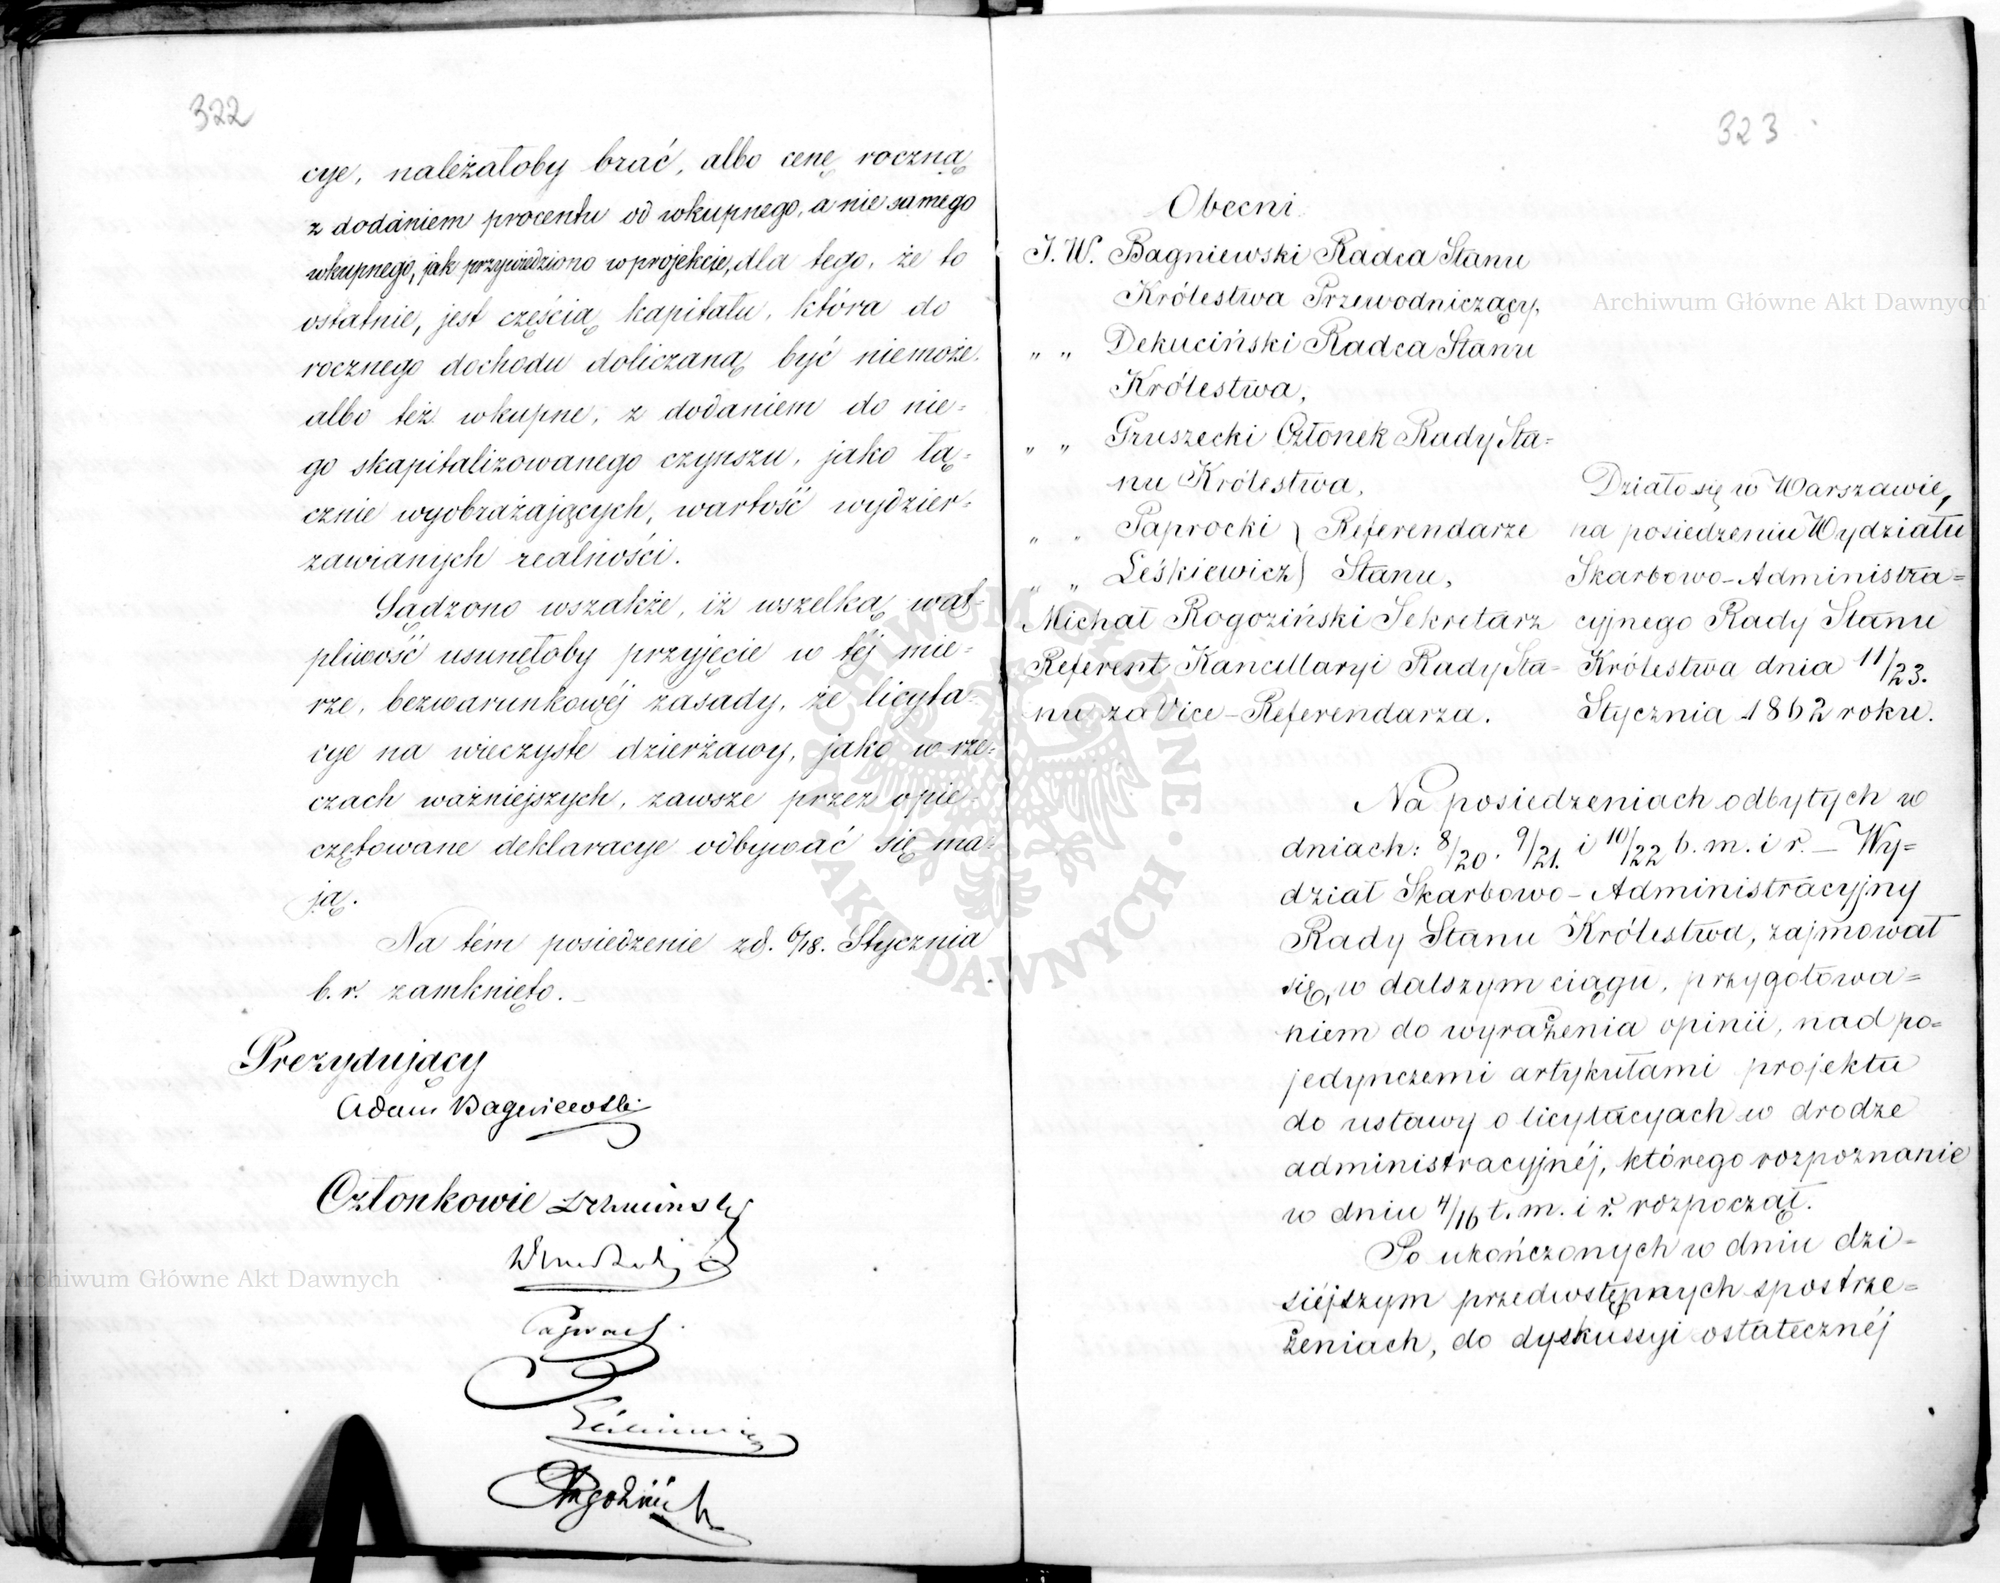 322
cye, należałoby brać, albo cenę roczną
z dodaniem procentu od wkupnego, a nie samego
wkupnego, jak przywiedziono w projekcie, dla tego, że to
ostatnie, jest częścią kapitału, która do
rocznego dochodu doliczaną być niemoże.
albo też wkupne, z dodaniem do nie=
go skapitalizowanego czynszu, jako łą=
cznie wyobrażających, wartość wydzier=
żawianych realności.
Sądzono wszakże, iż wszelką wąt=
pliwość usunęłoby przyjęcie w téj mie=
rze, bezwarunkowéj zasady, że licyta=
cye na wieczyste dzierżawy, jako w rze=
czach ważniejszych, zawsze przez opie=
czętowane deklaracye odbywać się ma=
ją.
Na tém posiedzenie z d. 6/18. Stycznia
b. r. zamknięto.
Prezydujący
Adam Bagniewski
Członkowie
323
Obecni
J. W. Bagniewski Radca Stanu
Królestwa Przewodniczący,
" " Dekuciński Radca Stanu
Królestwa,
" " Gruszecki Członek Rady Sta=
nu Królestwa,
" " Paprocki } Referendarze
" " Leśkiewicz } Stanu,
Michał Rogoziński Sekretarz
Referent Kancellaryi Rady Sta=
nu za Vice-Referendarza.
Działo się w Warszawie,
na posiedzeniu Wydziału
Skarbowo-Administra=
cyjnego Rady Stanu
Królestwa dnia 11/23.
Stycznia 1862 roku.
Na posiedzeniach odbytych w
dniach: 8/20. 9/21. i 10/22 b. m. i r. — Wy=
dział Skarbowo-Administracyjny
Rady Stanu Królestwa, zajmował
się, w dalszym ciągu, przygotowa=
niem do wyrażenia opinii, nad po=
jedynczemi artykułami projektu
do ustawy o licytacyach w drodze
administracyjnéj, którego rozpoznanie
w dniu 4/16 t. m. i r. rozpoczął.
Po ukończonych w dniu dzi=
siéjszym przedwstępnych spostrze=
żeniach, do dyskussyi ostatecznéj
Archiwum Główne Akt Dawnych
Archiwum Główne Akt Dawnych
· ARCHIWUM GŁÓWNE · AKT DAWNYCH ·